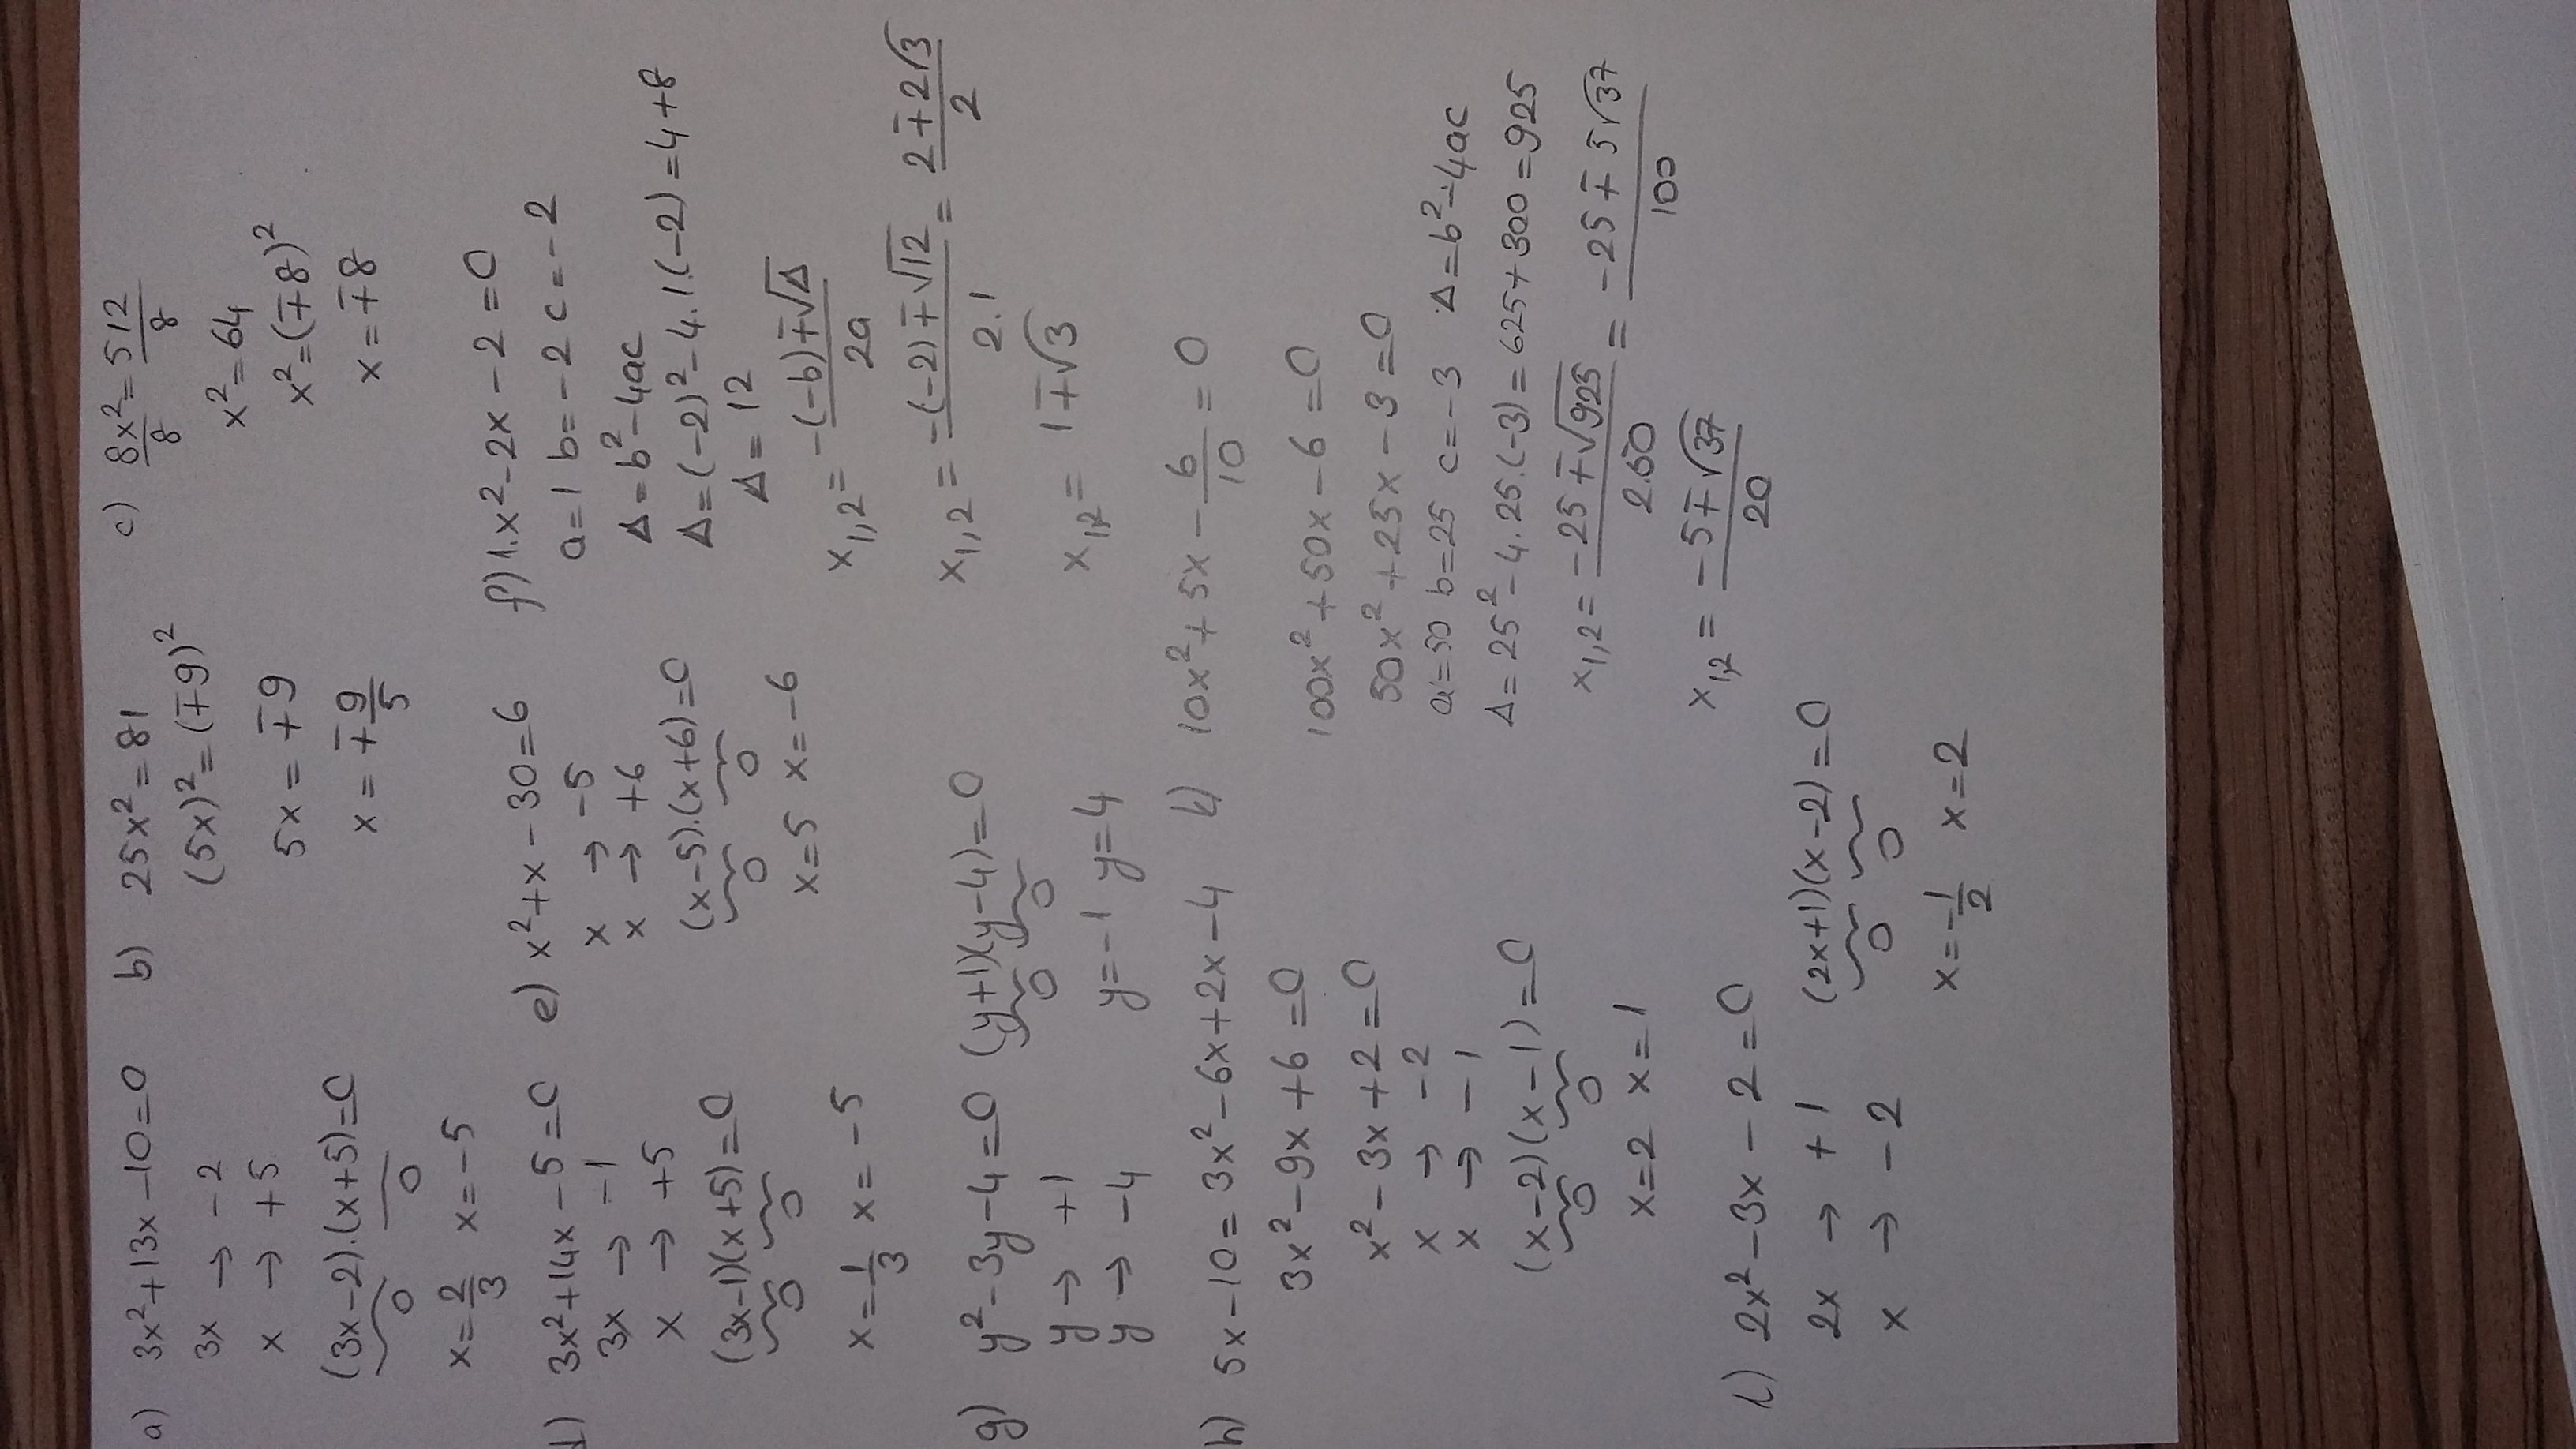 a) 3x²+13x-10=0
3x → -2
x → +5
(3x-2).(x+5)=0
0 0
x=2/3 x=-5
b) 25x²=81
(5x)²=(∓9)²
5x=∓9
x=∓9/5
c) 8x²/8=512/8
x²=64
x²=(∓8)²
x=∓8
d) 3x²+14x-5=0
3x → -1
x → +5
(3x-1)(x+5)=0
0 0
x=1/3 x=-5
e) x²+x-30=6
x → -5
x → +6
(x-5).(x+6)=0
0 0
x=5 x=-6
f) 1.x²-2x-2=0
a=1 b=-2 c=-2
Δ=b²-4ac
Δ=(-2)²-4.1.(-2)=4+8
Δ=12
x1,2=-(-b)∓√Δ/2a
x1,2=-(-2)∓√12/2.1=2∓2√3/2
x1,2=1∓√3
g) y²-3y-4=0 (y+1)(y-4)=0
y → +1 0 0
y → -4 y=-1 y=4
h) 5x-10=3x²-6x+2x-4
3x²-9x+6=0
x²-3x+2=0
x → -2
x → -1
(x-2)(x-1)=0
0 0
x=2 x=1
k) 10x²+5x-6/10=0
100x²+50x-6=0
50x²+25x-3=0
a=50 b=25 c=-3 Δ=b²-4ac
Δ=25²-4.25.(-3)=625+300=925
x1,2=-25∓√925/2.50=-25∓5√37/100
x1,2=-5∓√37/20
l) 2x²-3x-2=0
2x → +1 (2x+1)(x-2)=0
x → -2 0 0
x=-1/2 x=2